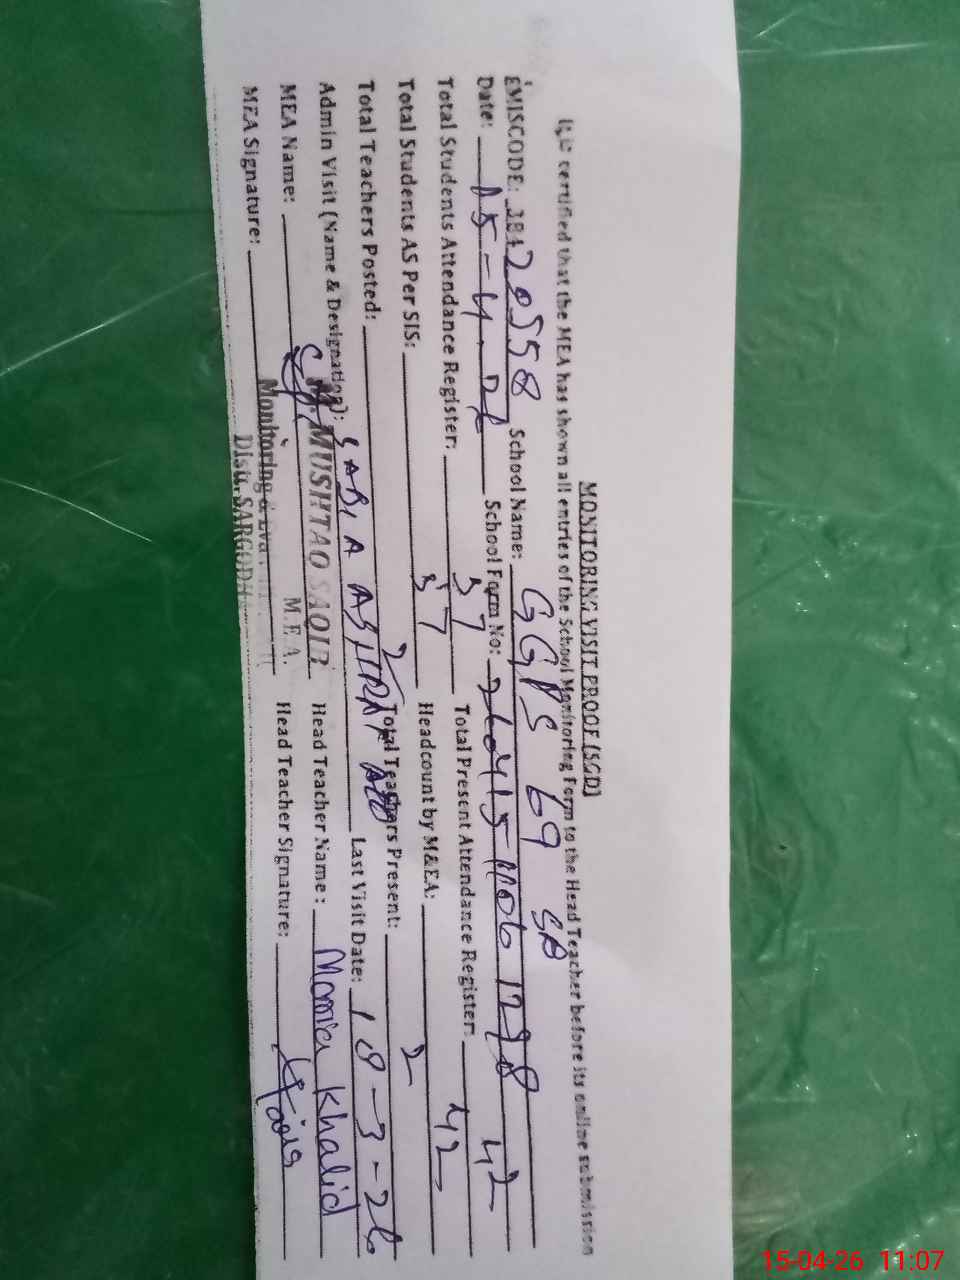 MONITORING VISIT PROOF (SGD)
It is certified that the MEA has shown all entries of the School Monitoring Form to the Head Teacher before its online submission
EMISCODE: 38420558 School Name: GGPS 69 SB
Date: 15-4-26 School Form No: 26041511061298
Total Students Attendance Register: 57 Total Present Attendance Register: 42
Total Students AS Per SIS: 57 Headcount by M&EA: 42
Total Teachers Posted: 2 Total Teachers Present: 2
Admin Visit (Name & Designation): Last Visit Date: 18-3-26
MEA Name: MUSHTAQ SAQIB Head Teacher Name: Momia Khalid
M.E.A.
MEA Signature: Head Teacher Signature:
Monitoring &
Distt. SARGODHA
15-04-26 11:07